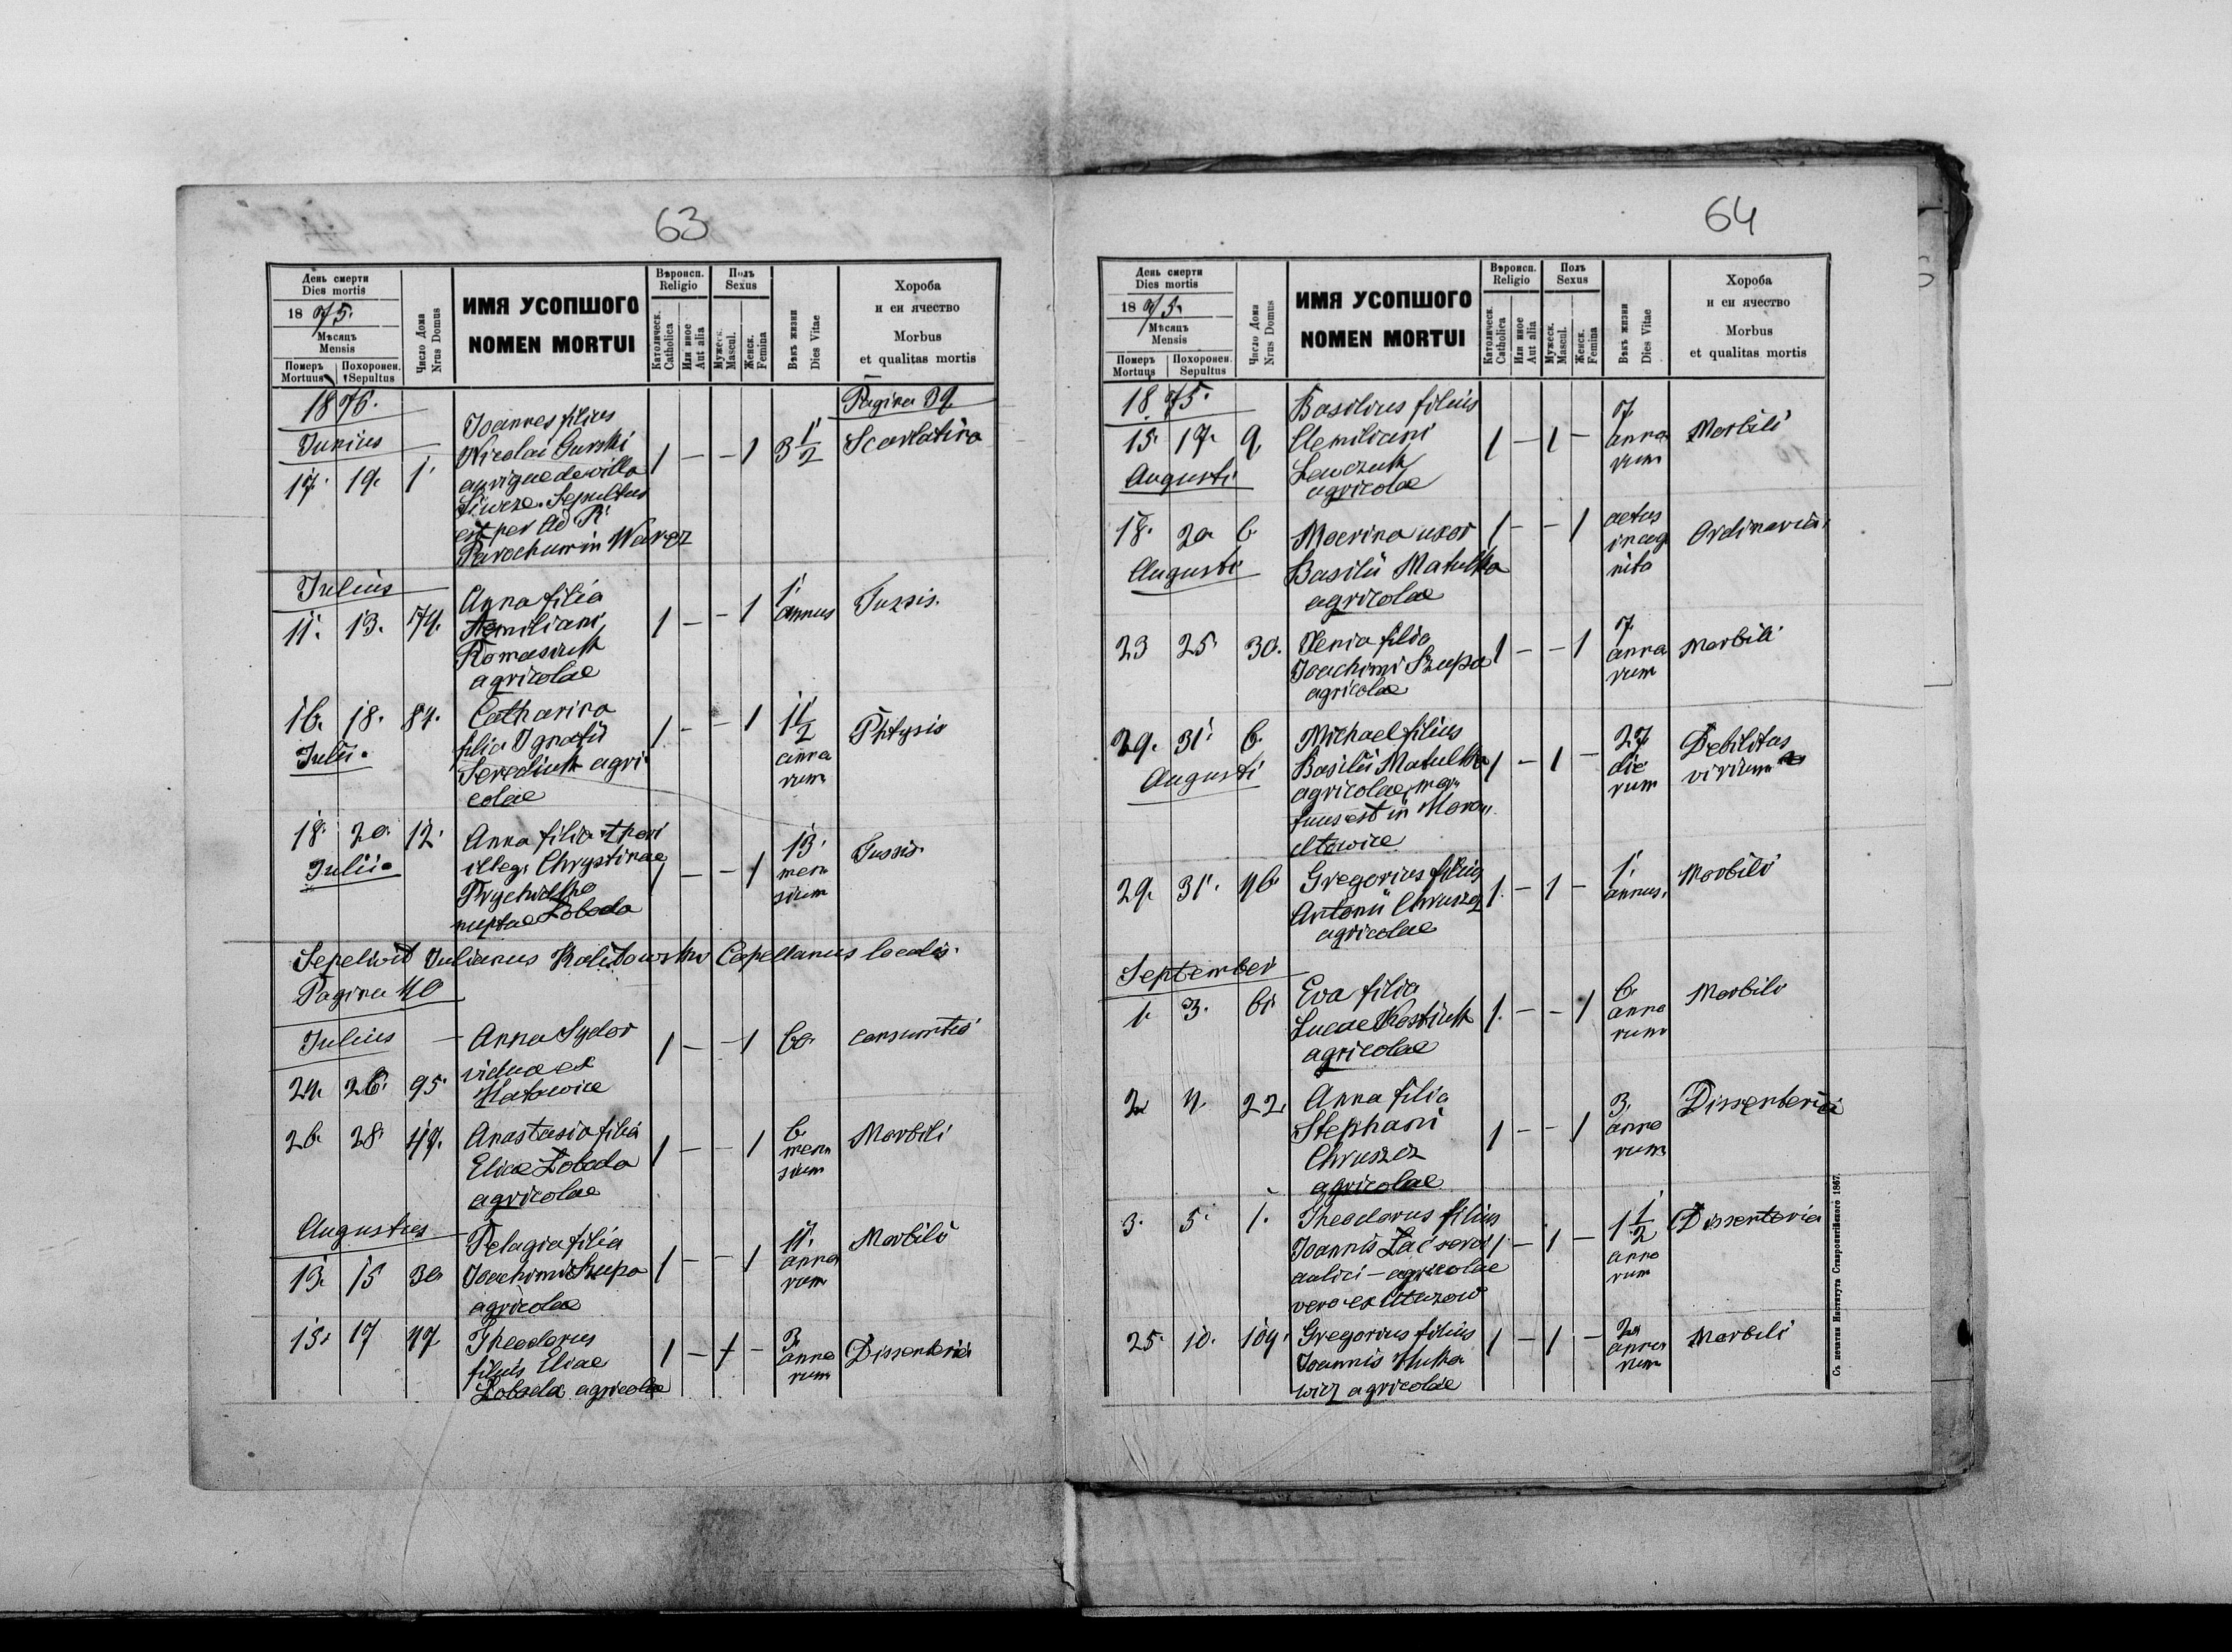 63
День смерти
Dies mortis
1875.
Мѣсяцъ
Mensis
Померъ
Mortuus
Похоронен.
Sepultus
Число Дома
Nrus Domus
ИМЯ УСОПШОГО
NOMEN MORTUI
Вѣроисп.
Religio
Католическ.
Catholica
Или иное
Aut alia
Полъ
Sexus
Мужеск.
Mascul.
Женск.
Femina
Вѣкъ жизни
Dies Vitae
Хороба
и еи ячество
Morbus
et qualitas mortis
1875.
Pagina 39.
Junius
17. 19. 1.
Joannes filius
Nicolai Gurski
aurigae de villa
Sepultus
est per Ad. R.
Parochum in Warez
1 – – 1
3 1/2
Scarlatina
Julius
11. 13. 74.
Anna filia
Aemiliani
Romasiuk
agricolae
1 – – 1
1
annus
Tussis.
16. 18. 84.
Julii.
Catharina
filia Ignatii
Serediuk agri
colae
1 – – 1
1 1/2
anno
rum
Phtysis
18. 20. 12.
Julii.
Anna filia thori
illeg. Chrystinae
nuptae Łoboda
1 – – 1
13.
men
sium
Tussis.
Sepelivit Julianus Kalitowski Capellanus localis.
Pagina 40
Julius
24. 26. 95.
Anna Sydor
vidua ex
1 – – 1
60.
consumtio
26. 28. 49.
Anastasia filia
Eliae Łoboda
agricolae
1 – – 1
6.
men
sium
Morbili
Augustus
13. 15 30.
Pelagia filia
Joachimi Szupa
agricolae
1 – – 1
anno
rum
Morbili
15. 17 47
Theodorus
filius Eliae
Łoboda agricolae
1 – 1 –
3
anno
rum
Dissenteria
64
День смерти
Dies mortis
1875.
Мѣсяцъ
Mensis
Померъ
Mortuus
Похоронен.
Sepultus
Число Дома
Nrus Domus
ИМЯ УСОПШОГО
NOMEN MORTUI
Вѣроисп.
Religio
Католическ.
Catholica
Или иное
Aut alia
Полъ
Sexus
Мужеск.
Mascul.
Женск.
Femina
Вѣкъ жизни
Dies Vitae
Хороба
и еи ячество
Morbus
et qualitas mortis
1875.
15. 17. 9.
Augusti
Basilius filius
Aemiliani
Lewczuk
agricolae
1 – 1 –
7.
anno
rum
Morbili
18. 20. 6.
Augusti
Macrina uxor
Basilii Matulka
agricolae
1 – – 1
aetas
incog
nita
Ordinaria
23 25. 30.
Xenia filia
Joachimi Szupa
agricolae
1 – – 1
7.
anno
rum
Morbili
29. 31. 6.
Augusti
Michael filius
Basilii Matulka
agricolae, mor
tuus est in
1 – 1 –
27
die
rum
Debilitas
virium
29. 31. 46.
Gregorius filius
Antonii Chruszcz
agricolae
1. – 1 –
1.
annus.
Morbili
September
1. 3. 61.
Eva filia
Lucae Kostiuk
agricolae
1. – – 1
6.
anno
rum
Morbili
2 4 22.
Anna filia
Stephani
Chruszcz
agricolae
1 – – 1
3.
anno
rum
Dissenteria
3. 5. 1.
Theodorus filius
Joannis Łać servi
aulici – agricolae
vero ex Uhrynow
1 – 1 –
1 1/2
anno
rum
Dissenteria
25. 10. 104.
Gregorius filius
Joannis
wicz agricolae
1 – 1 –
2
anno
rum
Morbili
Съ печатни Института Ставропигійского 1867.